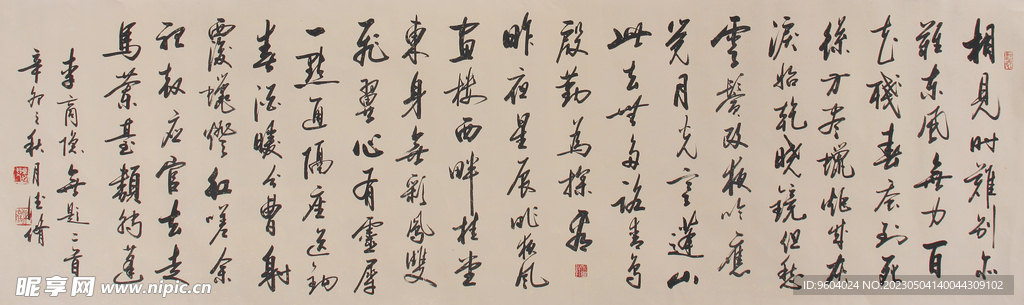 相見时難别亦
難东風無力百
花殘春蚕到死
絲方尽蠟炬成灰
淚始乾晓鏡但愁
雲鬓改夜吟應
觉月光寒蓬山
此去無多路青鸟
殷勤為探看
昨夜星辰昨夜风
画楼西畔桂堂
東身無彩鳳雙
飛翼心有靈犀
一點通隔座送钩
春酒暖分曹射
覆蠟燈红嗟余
聽鼓应官去走
馬蘭臺類轉蓬
李商隐無题二首
辛卯之秋月
昵享网 www.nipic.cn
ID:9604024 NO:20230504140044309102